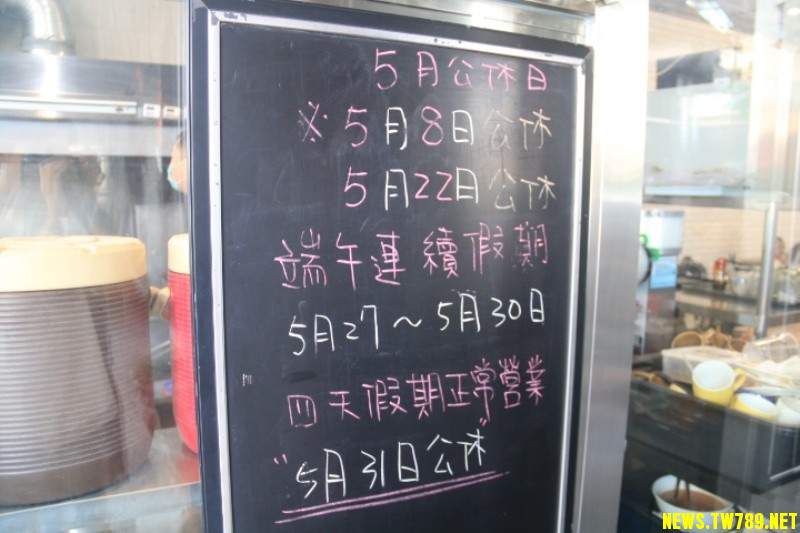 5月公休日
※5月8日公休
5月22日公休
端午連續假期
5月27～5月30日
四天假期正常營業
"5月31日公休"
NEWS.TW789.NET